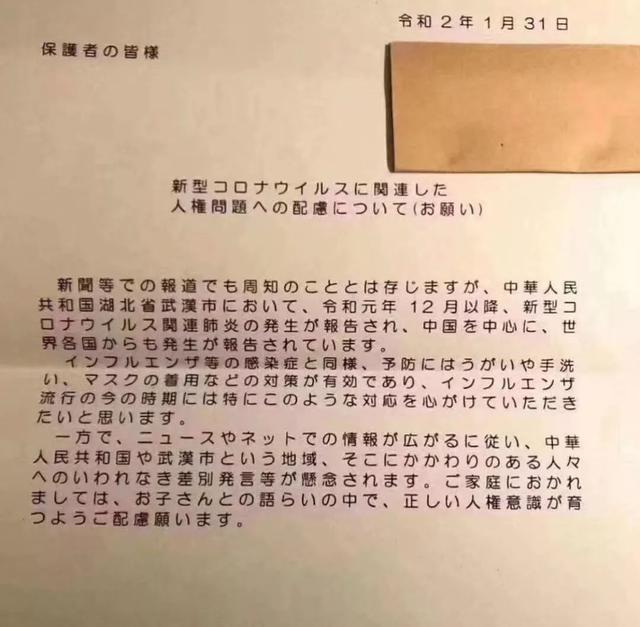 令和２年１月31日
保護者の皆様
新型コロナウイルスに関連した
人権問題への配慮について(お願い)
新聞等での報道でも周知のこととは存じますが、中華人民
共和国湖北省武漢市において、令和元年12月以降、新型コ
ロナウイルス関連肺炎の発生が報告され、中国を中心に、世
界各国からも発生が報告されています。
インフルエンザ等の感染症と同様、予防にはうがいや手洗
い、マスクの着用などの対策が有効であり、インフルエンザ
流行の今の時期には特にこのような対応を心がけていただき
たいと思います。
一方で、ニュースやネットでの情報が広がるに従い、中華
人民共和国や武漢市という地域、そこにかかわりのある人々
へのいわれなき差別発言等が懸念されます。ご家庭におかれ
ましては、お子さんとの語らいの中で、正しい人権意識が育
つようご配慮願います。